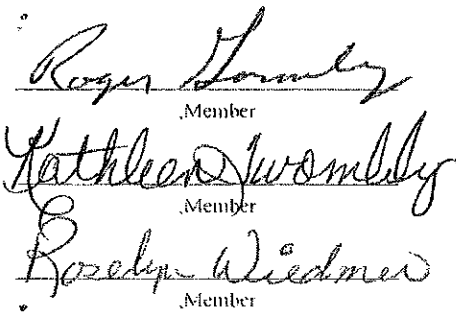 Roger Gormley
,Member
Kathleen Twombly
,Member
Roselyn Wiedmer
,Member